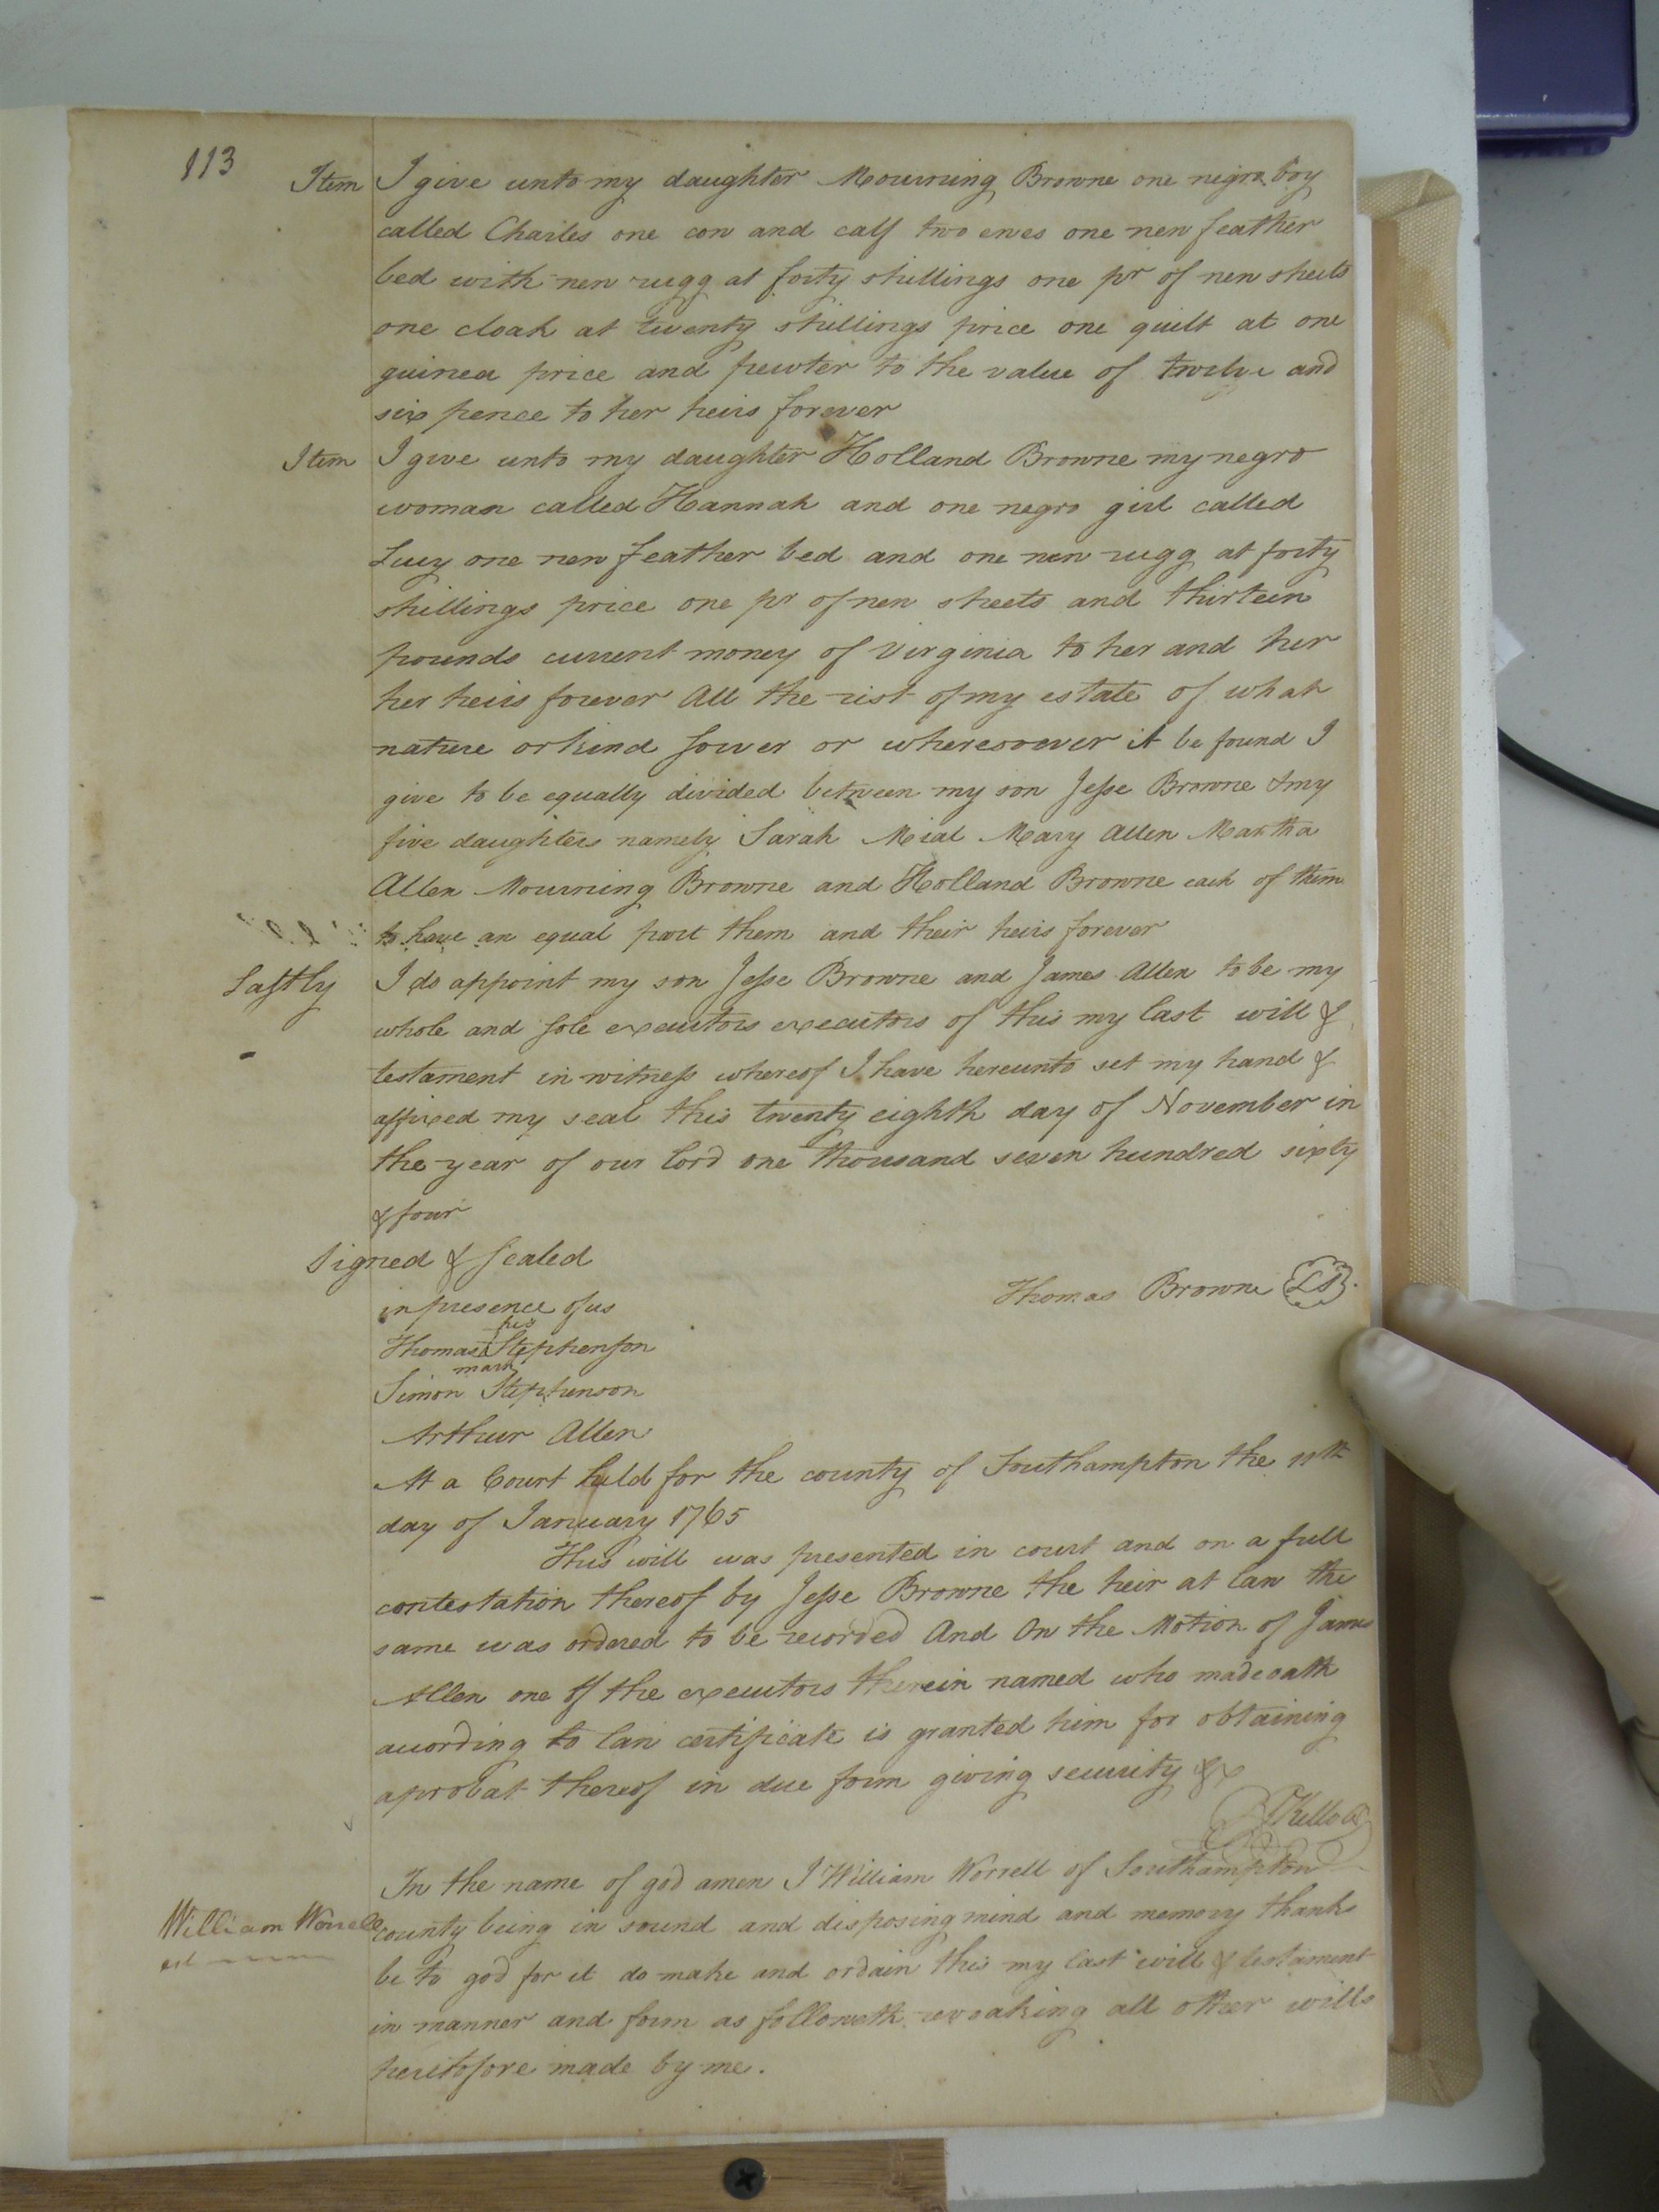 113
Item I give unto my daughter Mourning Browne one negro boy
called Charles one cow and calf two ewes one new feather
bed with new rugg at forty shillings one pr of new sheets
one cloak at twenty shillings price one quilt at one
guinea price and pewter to the value of twelve and
six pence to her heirs forever
Item I give unto my daughter Holland Browne my negro
woman called Hannah and one negro girl called
Lucy one new feather bed and one new rugg at forty
shillings price one pr of new sheets and thirteen
pounds current money of Virginia to her and her
her heirs forever All the rest of my estate of what
nature or kind sower or wheresoever it be found I
give to be equally divided between my son Jesse Browne & my
five daughters namely Sarah Mial Mary Allen Martha
Allen Mourning Browne and Holland Browne each of them
to have an equal part them and their heirs forever
Lastly I do appoint my son Jesse Browne and James Allen to be my
whole and sole executors executors of this my last will &
testament in witness whereof I have hereunto set my hand &
affixed my seal this twenty eighth day of November in
the year of our lord one thousand seven hundred sixty
& four
Signed & sealed
in presence of us
Thomas Browne LS
his
Thomas Stephenson
mark
Simon Stephenson
Arthur Allen
At a Court held for the county of Southampton the 10th
day of January 1765
This will was presented in court and on a full
contestation thereof by Jesse Browne the heir at law the
same was ordered to be recorded And On the Motion of James
Allen one of the executors therein named who made oath
according to law certificate is granted him for obtaining
a probat thereof in due form giving security &c
In the name of god amen I William Worrell of Southampton
William Worrell county being in sound and disposing mind and memory thanks
be to god for it do make and ordain this my last will & testament
in manner and form as followeth revoaking all other wills
heretofore made by me.